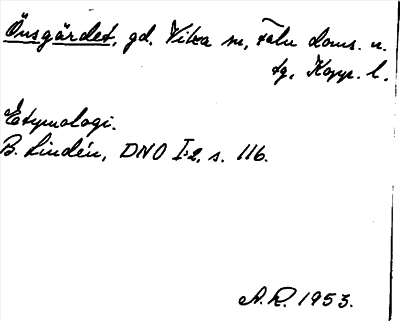 Önsgärdet, gd. Vika sn, Falu doms. n.
tg, Kopp. l.
Etymologi.
B. Lindén, DNO I:2, s. 116.
A.R. 1953.